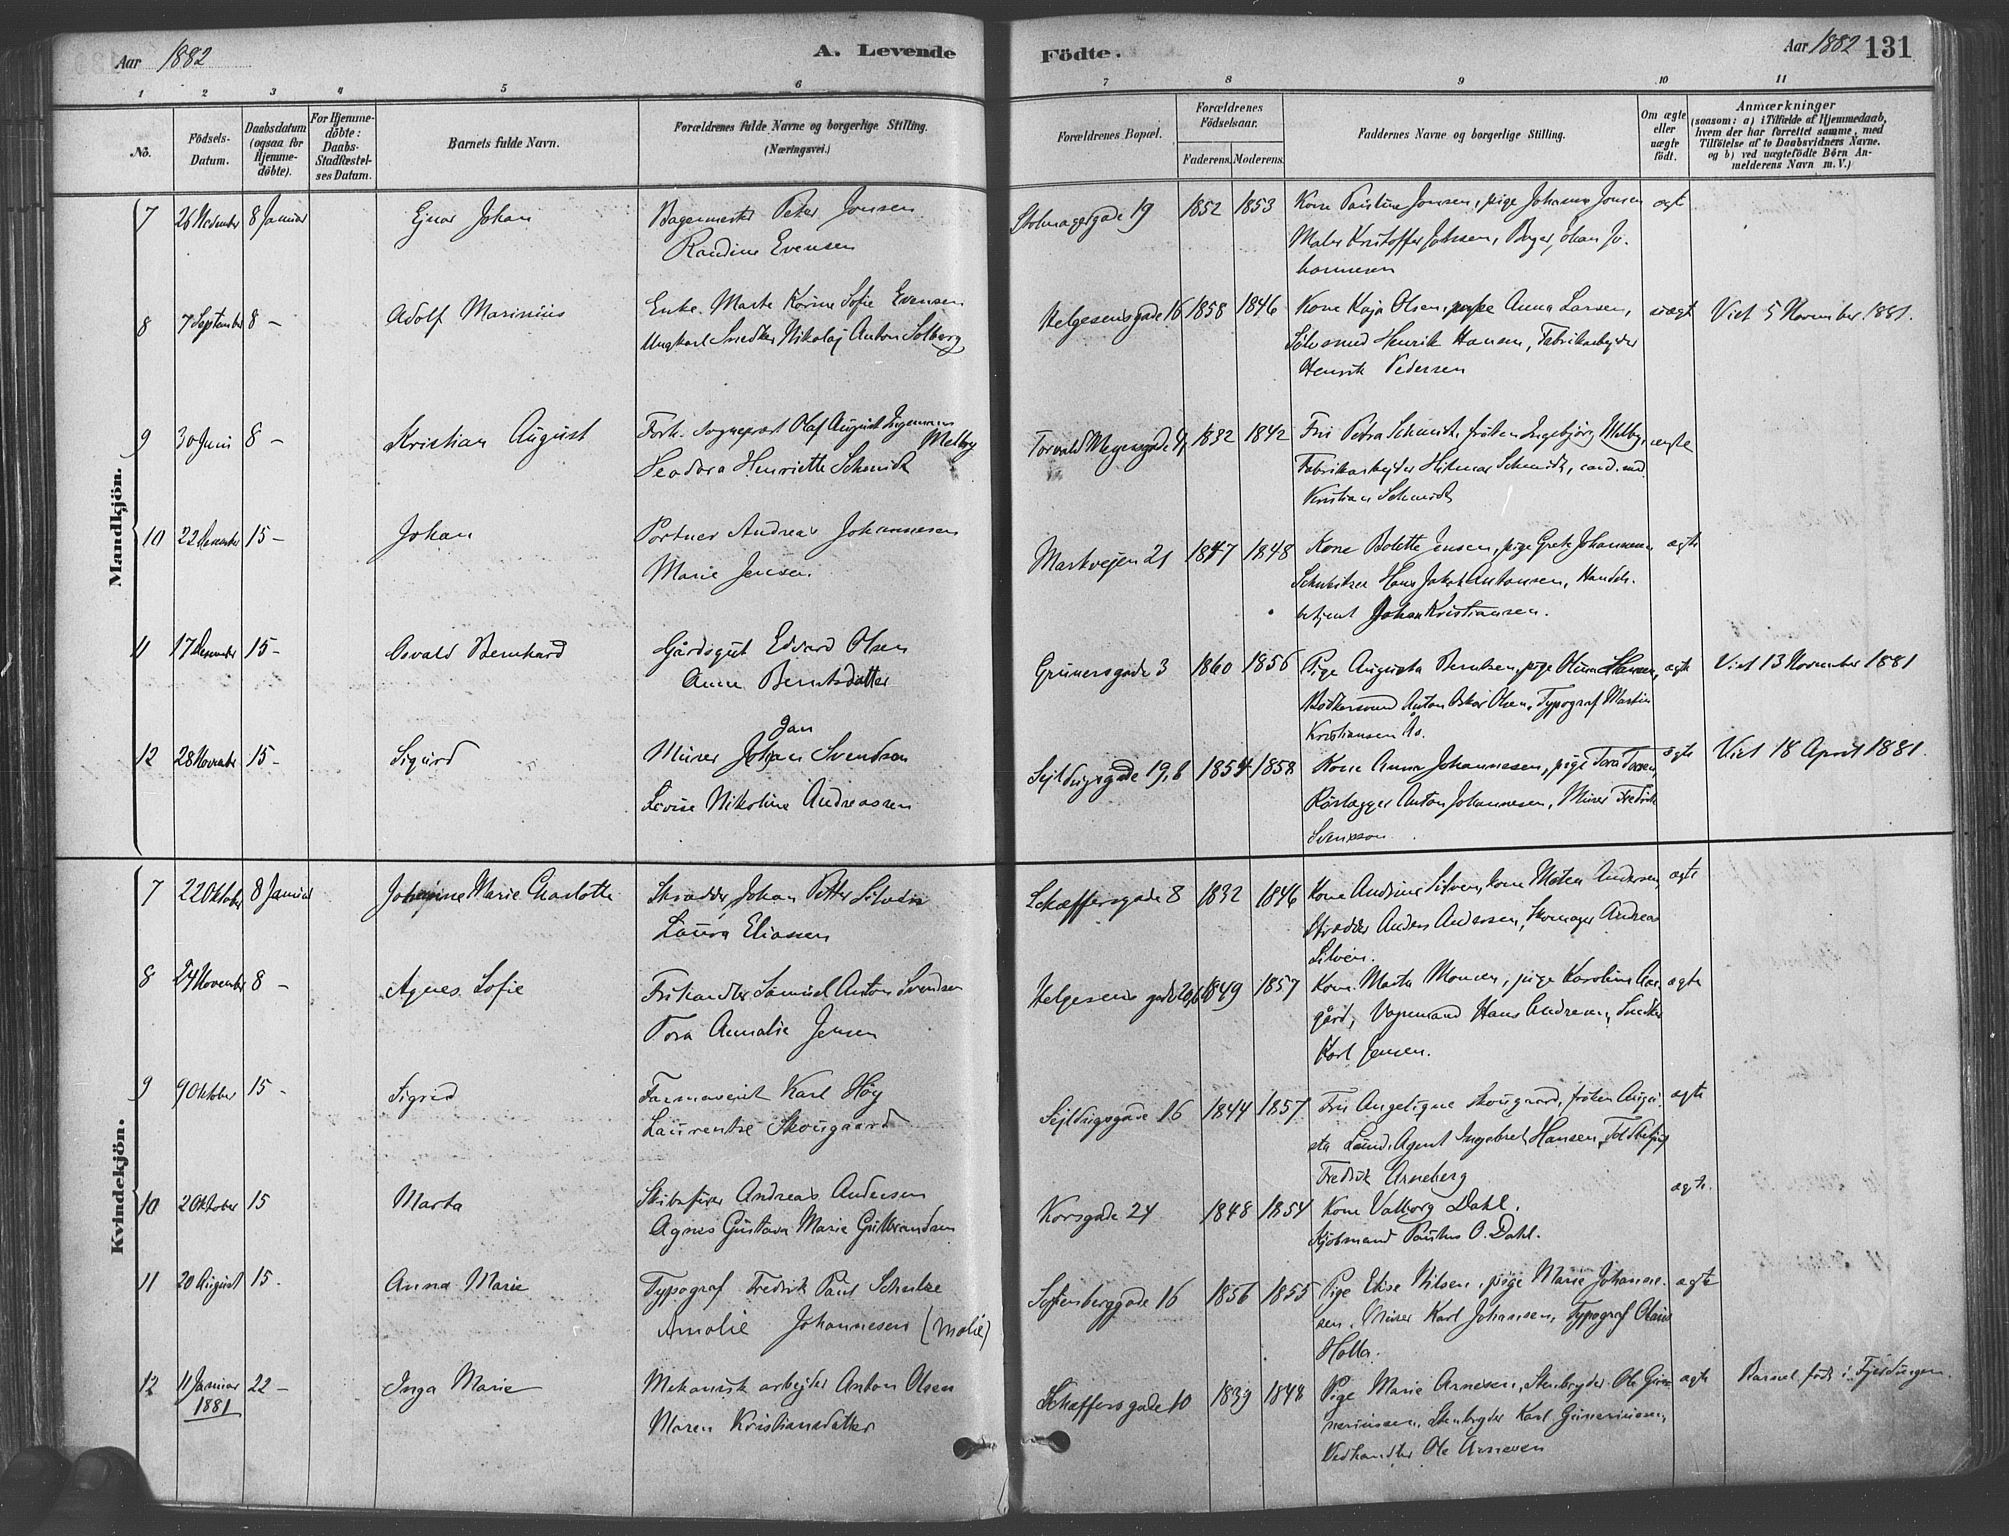 Aar 1882 A. Levende
Födte. Aar 1882 131
1 2 3 4 5 6
7 8 9 10 11
No.
Födsels-Datum.
Daabsdatum (ogsaa for Hjemmedöbte).
For Hjemmedöbte: Daabs-Stadfæstelses Datum.
Barnets fulde Navn.
Forældrenes fulde Navne og borgerlige Stilling.
(Næringsvei.)
Forældrenes Bopæl.
Forældrenes Födselsaar.
Faderens. Moderens.
Faddernes Navne og borgerlige Stilling.
Om ægte eller uægte födt.
Anmærkninger
(saasom: a) i Tilfælde af Hjemmedaab,
hvem der har forrettet samme, med
Tilföielse af to Daabsvidners Navne.
og b) ved uægtefödte Börn An-
melderens Navn m. V.)
Mandkjön.
7 26 November 8 Januar Ejnar Johan Bagermester Peter Jonsen
Randine Evensen
Stolmagergade 19 1852 1853 Kone Pauline Jonsen, pige Johanna Jonsen ægte
Maler Kristoffer Johnsen, Bager Johan Jo-
hannesen
8 7 September 8 – Adolf Marinius Enke Marte Karine Sofie Evensen
Ungkarl Snedker Nikolaj Anton Solberg
Helgesensgade 16 1858 1846 Kone Kaja Olsen, pige Anna Larsen, uægt Viet 5 November 1881.
Sölvsmed Henrik Hansen, Fabrikarbejder
Henrik Pedersen
9 30 Juni 8 – Kristian August Forh. Sogneprest Olaf August Ingemann
Melby
Teodora Henriette Schmidt
Torvald Meyersgade 1832 1842 Fru Petra Schmidt, fröken Ingebjörg Melby, ægte
Fabrikarbejder Hilmar Schmidt, cand. med
Kristian Schmidt
10 22 Desember 15 – Johan Portner Andreas Johannesen
Marie Jensen
Markvejen 21 1847 1848 Kone Bolette Jensen, pige Grete Johannesen ægte
Hans Jakob Antonsen, Handels-
betjent Johan Kristiansen.
11 17 Desember 15 – Osvald Bernhard Gårdsgut Edvard Olsen
Anne Berntsdatter
Grünersgade 3 1860 1856 Pige Augusta Berntsen, pige Oluma Hansen, ægte Viet 13 November 1881
Bödkersvend Anton Oskar Olsen, Typograf Martin
Kristiansen Ås.
12 28 November 15 – Sigurd Murer Johan Svendsen
Jan
Levine Nikoline Andreassen
Sejldugsgade 19, b 1854 1858 Kone Anna Johannesen, pige Tora ægte Viet 18 April 1881
Rörlægger Anton Johannesen, Murer Fredrik
Svensson
Kvindekjön.
7 22 Oktober 8 Januar Johanne Marie Charlotte Skrædder Johan Petter Silvén
Laura Eliassen
Schæffersgade 8 1832 1846 Kone Andrine Silven, kone Matea Andersen, ægte
Skrædder Anders Andersen, Skomager Andreas
Silven.
8 24 November 8 – Agnes Sofie Fiskandler Samuel Anton Svendsen
Tora Annalie Jensen
Helgesens gade 20, b 1849 1857 Kone Marta Monsen, pige Karoline Aas- ægte
gård, Vognmand Hans Andresen, Snedker
Karl Jensen.
9 9 Oktober 15 – Sigrid Farmaceut Karl Höy
Laurentze Skougaard
Sejldugsgade 16 1844 1857 Fru Angelique Skougaard, fröken Augu- ægte
sta Lund, Agent Ingebret Hansen,
Fredrik Arneberg
10 2 Oktober 15 Marta Skibsförer Andreas Andersen
Agnes Gustava Marie Gulbrandsen
Korsgade 24 1848 1854 Kone Valborg Dahl. ægte.
Kjöbmand Paulus O. Dahl.
11 20 August 15 – Anna Marie Typograf Fredrik Paul Schulze
Amalie Johannesen (Malie)
Sofienberggade 16 1856 1855 Pige Elise Nilsen, pige Marie Johanne- ægte
sen, Murer Karl Johansen, Typograf Olaus
Holla.
12 11 Januar 22 – Inga Marie Mekanisk arbejder Anton Olsen
1881
Maren Kristiansdatter
Schæffersgade 10 1839 1848 Pige Marie Arnesen, Stenbryder Ole Gun- ægte Barnet födt i Fjeldvigen.
neriussen, Stenbryder Karl Gunneriussen,
Vedhandler Ole Arnesen